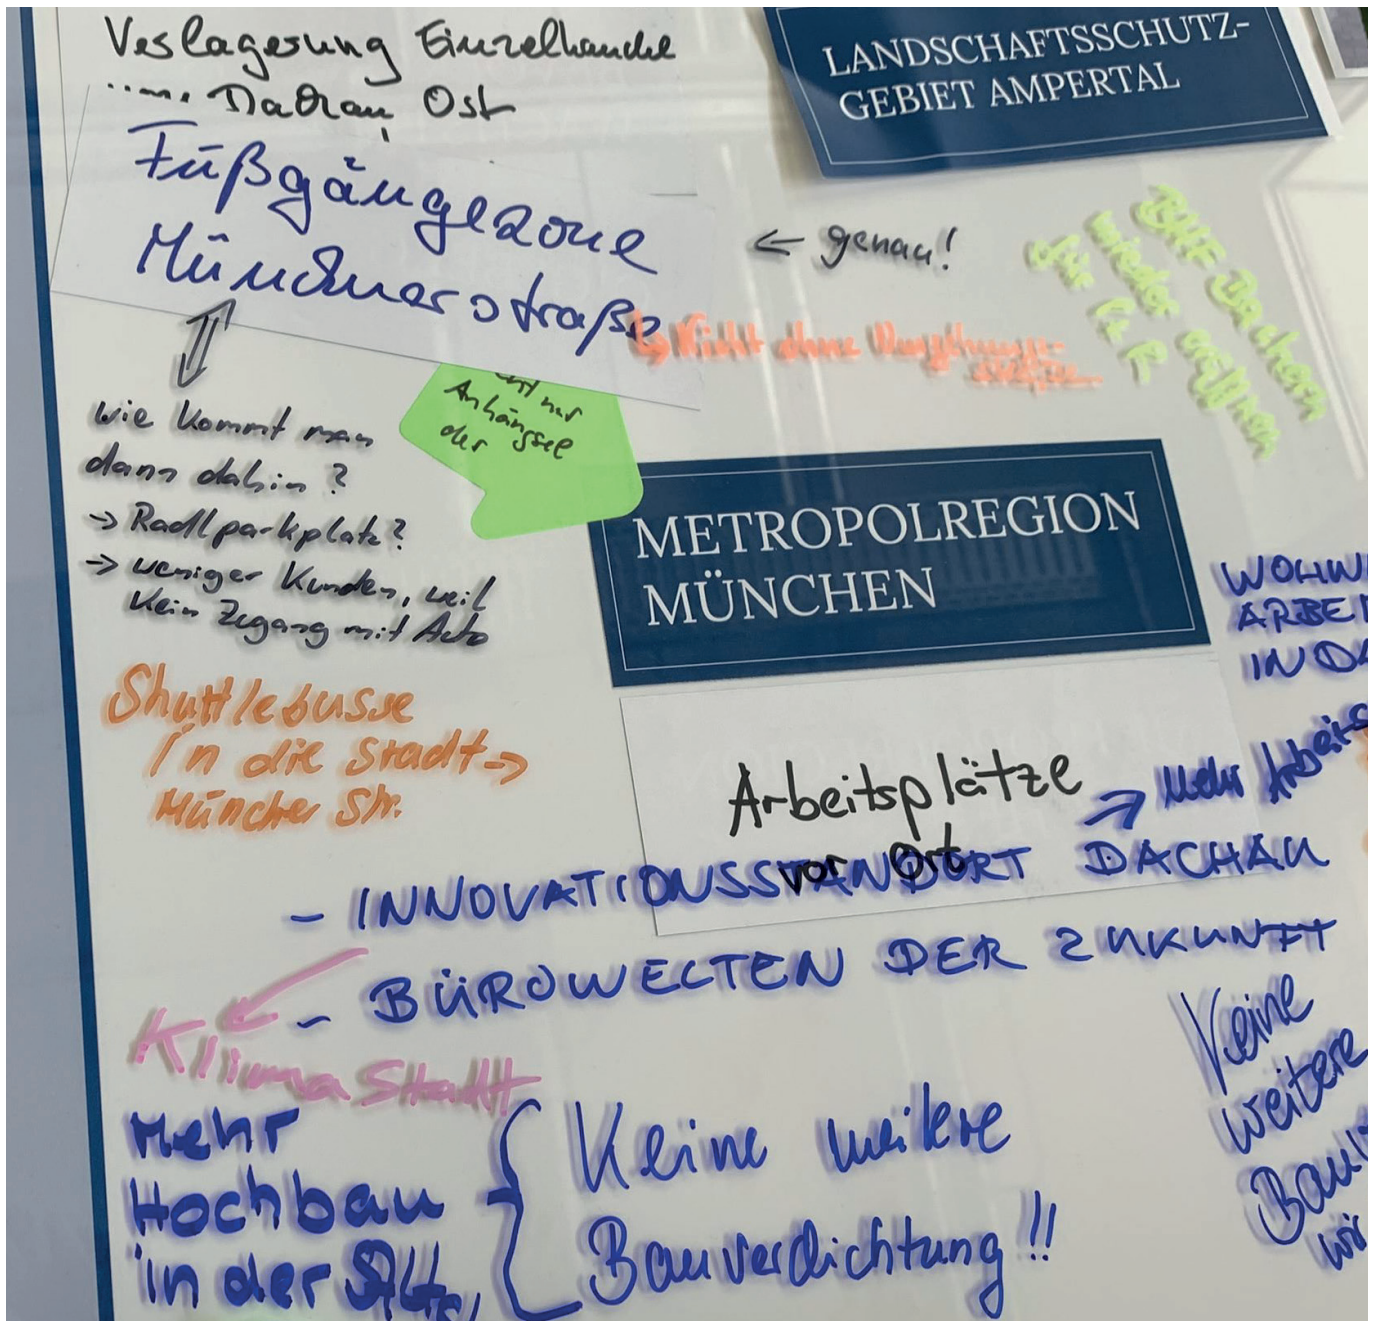 Verlagerung Einzelhandel
Dachau Ost
Fußgängezone
Münchnerstraße
← genau!
↳ Nicht ohne Umgehungs-
BHF Dachau
wieder eröffnen
für
LANDSCHAFTSSCHUTZ-
GEBIET AMPERTAL
nur
Anhängsel
der
wie kommt man
dann dahin?
→ Radlparkplatz?
→ weniger Kunden, weil
kein Zugang mit Auto
METROPOLREGION
MÜNCHEN
WOHN
ARBEI
IN DA
Shuttlebusse
in die Stadt →
Münchner Str.
Arbeitsplätze
vor Ort
→ Mehr Arbeits
- INNOVATIONSSTANDORT DACHAU
- BÜROWELTEN DER ZUKUNFT
KlimaStadt
Mehr
Hochbau
in der
Keine weitere
Bauverdichtung!!
Keine
weitere
Bau